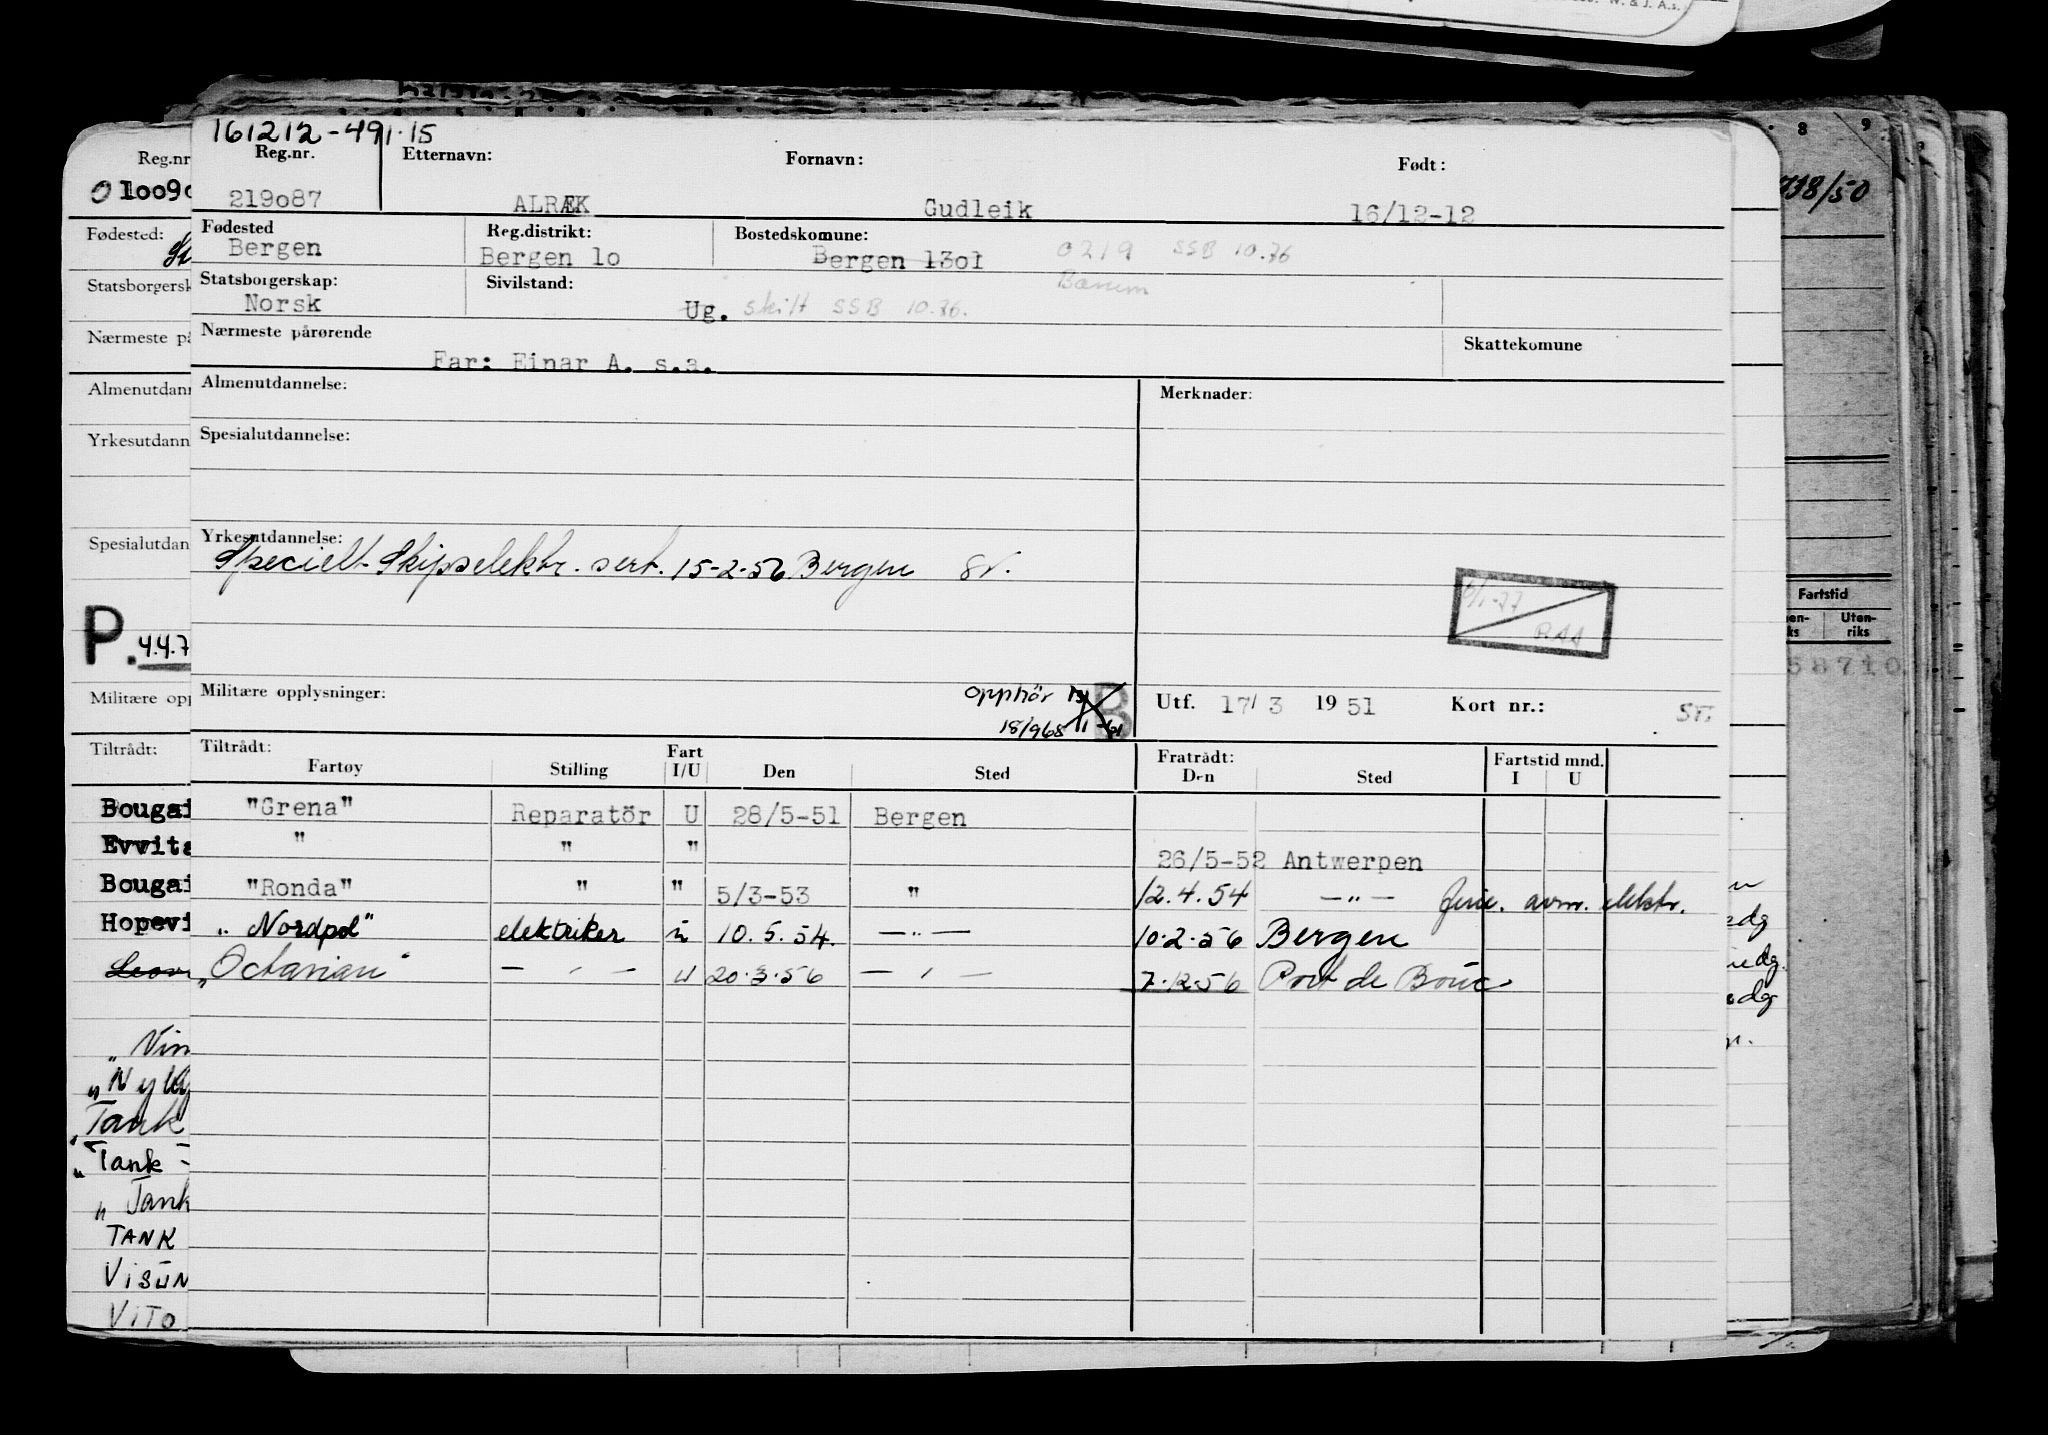 161212-491.15
Reg.nr. Etternavn: Fornavn: Født:
219087 ALRÆK Gudleik 16/12-12
Fødested Reg.distrikt: Bostedskomune:
Bergen Bergen 10 Bergen 1301 0219 SSB 10.76
Bærum
Statsborgerskap: Sivilstand:
Norsk Ug. skilt SSB 10.76.
Nærmeste pårørende Skattekomune
Far: Einar A. s.a.
Almenutdannelse: Merknader:
Spesialutdannelse:
Yrkesutdannelse:
Specielt Skipselektr. sert. 15-2-56 Bergen
RAA
Militære opplysninger: opphör Utf. 17/3 1951 Kort nr.:
18/968 B
Tiltrådt: Fratrådt: Fartstid mnd.
Fartøy Stilling Fart I/U Den Sted Den Sted I U
"Grena" Reparatör U 28/5-51 Bergen
" " " 26/5-52 Antwerpen
"Ronda" " " 5/3-53 " 12.4.54 —"— avm. elektr.
"Nordpol" elektriker u 10.5.54. —"— 10.2.56 Bergen
"Octavian" — ' — u 20.3.56 — ' — 7.12.56 Port de Bouc
Reg.nr
01009
Fødested:
Statsborgersk
Nærmeste på
Almenutdann
Yrkesutdann
Spesialutdan
P. 4.4.7
Militære opp
Tiltrådt:
Bougai
Evvita
Bougai
Hopevi
"Vin
"Tank
"Tank -
"Tank
TANK
VISUN
VITO
8 9
738/50
Fartstid
Uten-
riks
58710
W. & J. A.s.